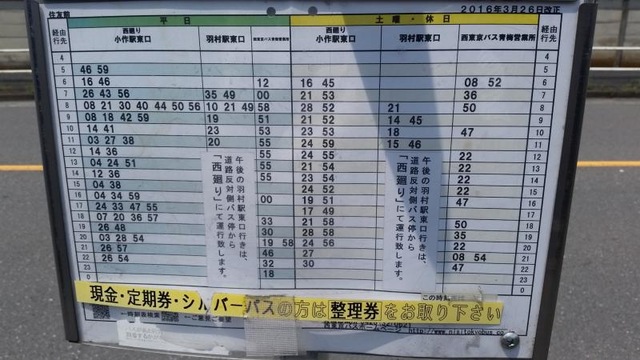 住友前
2016年3月26日改正
平日 土曜・休日
経由 行先 西廻り 小作駅東口 羽村駅東口 西東京バス青梅営業所 西廻り 小作駅東口 羽村駅東口 西東京バス青梅営業所 経由 行先
4 4
5 46 59 5
6 16 46 12 16 45 08 52 6
7 26 43 56 35 49 00 21 53 36 7
8 08 21 30 40 44 50 56 10 21 49 58 28 52 21 50 8
9 08 18 42 59 19 51 21 51 14 45 9
10 14 41 23 53 23 53 18 47 10
11 03 27 38 20 55 24 53 15 46 11
12 14 36 55 24 55 22 12
13 04 24 51 55 21 54 22 13
14 12 36 55 23 54 22 14
15 04 38 55 24 52 22 15
16 04 34 59 00 19 51 47 16
17 24 33 47 55 17 49 17
18 07 20 36 57 33 21 58 50 18
19 26 48 30 28 58 35 19
20 03 28 54 19 58 24 56 22 20
21 26 57 46 27 08 54 21
22 26 54 32 30 47 22
23 18 23
0 0
午後の羽村駅東口行きは、
道路反対側バス停から
「西廻り」にて運行致します。
午後の羽村駅東口行きは、
道路反対側バス停から
「西廻り」にて運行致します。
現金・定期券・シルバーパスの方は整理券をお取り下さい